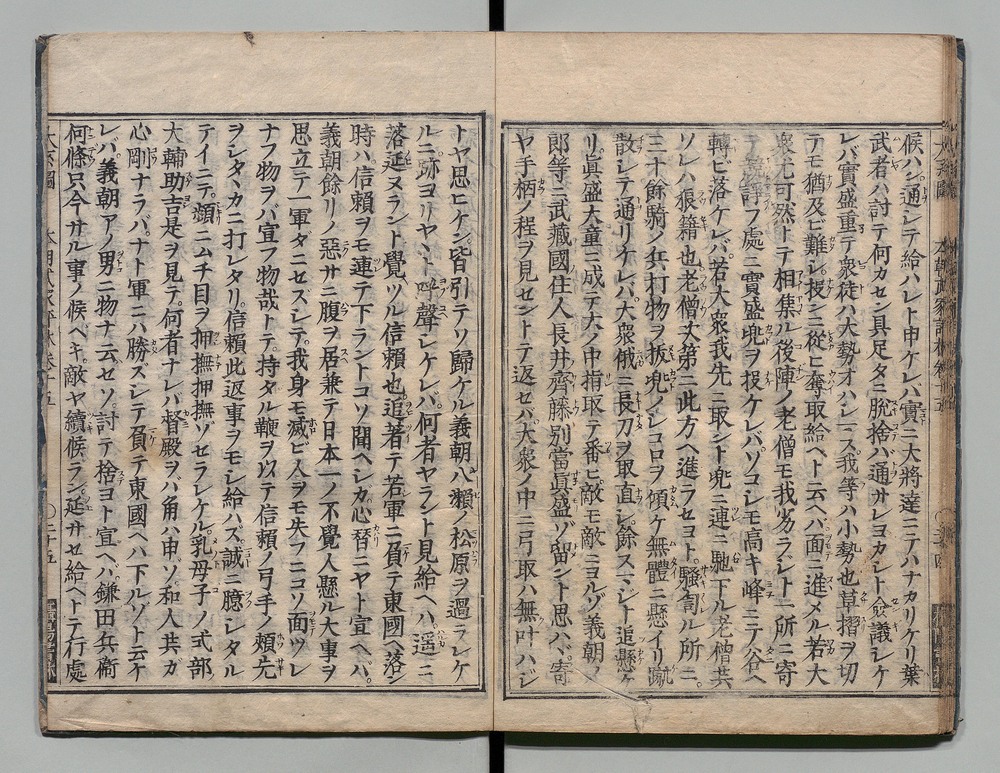 候ハン通シテ給ハレト申ケレバ實ニ大將達ニテハナカリケリ葉
武者ハ討テ何カセン具足タニ脱捨バ通サレヨカレト僉議シケ
レバ實盛重テ衆徒ハ大勢オハシマス我等ハ小勢也草摺ヲ切
テモ猶及ビ難シ投ニ從ヒ奪取給ヘト云ヘバ面ニ進メル若大
衆尤可然トテ相集ル後陣ノ老僧モ我劣ラシト一所ニ寄
テ諍フ處ニ實盛兜ヲ投ケレバソコレモ高キ峰ニテ谷ヘ
轉ビ落ケレバ若大衆我先ニ取ント兜ニ連ニ馳下ル老僧共
ソレハ狼籍也老僧次第ニ此方ヘ進ラセヨト騒動ル所ニ
三十餘騎ノ兵打物ヲ抜兜ノシコロヲ傾ケ無體ニ懸イリ蹴
散シテ通リケレバ大衆俄ニ長刀ヲ取直シ餘スマシト追懸タ
リ眞盛大童ニ成テ大ノ中指取テ番ヒ敵モ敵ニヨルゾ義朝ノ
郎等ニ武藏國ノ住人長井齊藤別當眞盛ゾ留ント思ハバ寄
ヤ手柄ノ程ヲ見セントテ返セバ大衆ノ中ニ弓取ハ無叶ハジ
トヤ思ヒケン皆引テソ歸ケル義朝八瀬ノ松原ヲ過ラレケ
ルニ跡ヨリヤヽト呼聲シケレバ何者ヤラント見給ヘハ遥ニ
落延ヌラント覺ツル信頼也追著テ若軍ニ負テ東國ヘ落ン
時ハ信頼ヲモ連テ下ラントコソ聞ヘシカ心替ニヤト宣ヘバ
義朝餘リノ惡サニ腹ヲ居兼テ日本一ノ不覺人懸ル大事ヲ
思立テ一軍ダニセズシテ我身モ滅ビ人ヲモ失フニコソ面ツレ
ナフ物ヲバ宣フ物哉トテ持タル鞭ヲ以テ信頼ノ弓手ノ頬先
ヲシタヽカニ打レタリ信頼此返事ヲモシ給ハズ誠ニ臆シタル
テイニテ頻ニムチ目ヲ押撫押撫ゾセラレケル乳母子ノ式部
大輔助吉是ヲ見テ何者ナレバ督殿ヲバ角ハ申ソ和人共カ
心剛ナラバナト軍ニハ勝ズシテ負テ東國ヘハ下ルゾト云ケ
レバ義朝アノ男ニ物ナ云セソ討テ捨ヨト宣ヘバ鎌田兵衛
何條只今サル事ノ候ベキ敵ヤ續候ラン延サセ給ヘトテ行處